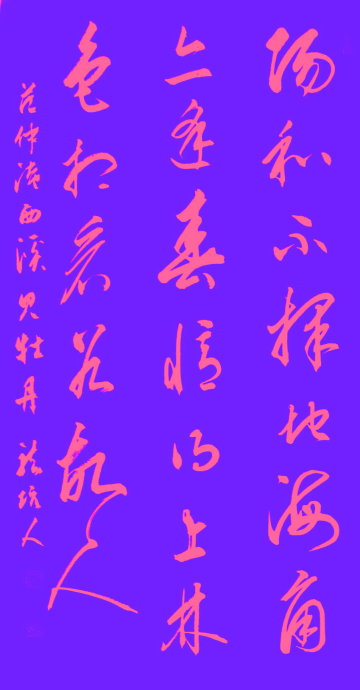 陽和不擇地海角
亦逢春憶得上林
色相看若故人
范仲淹西溪見牡丹 人